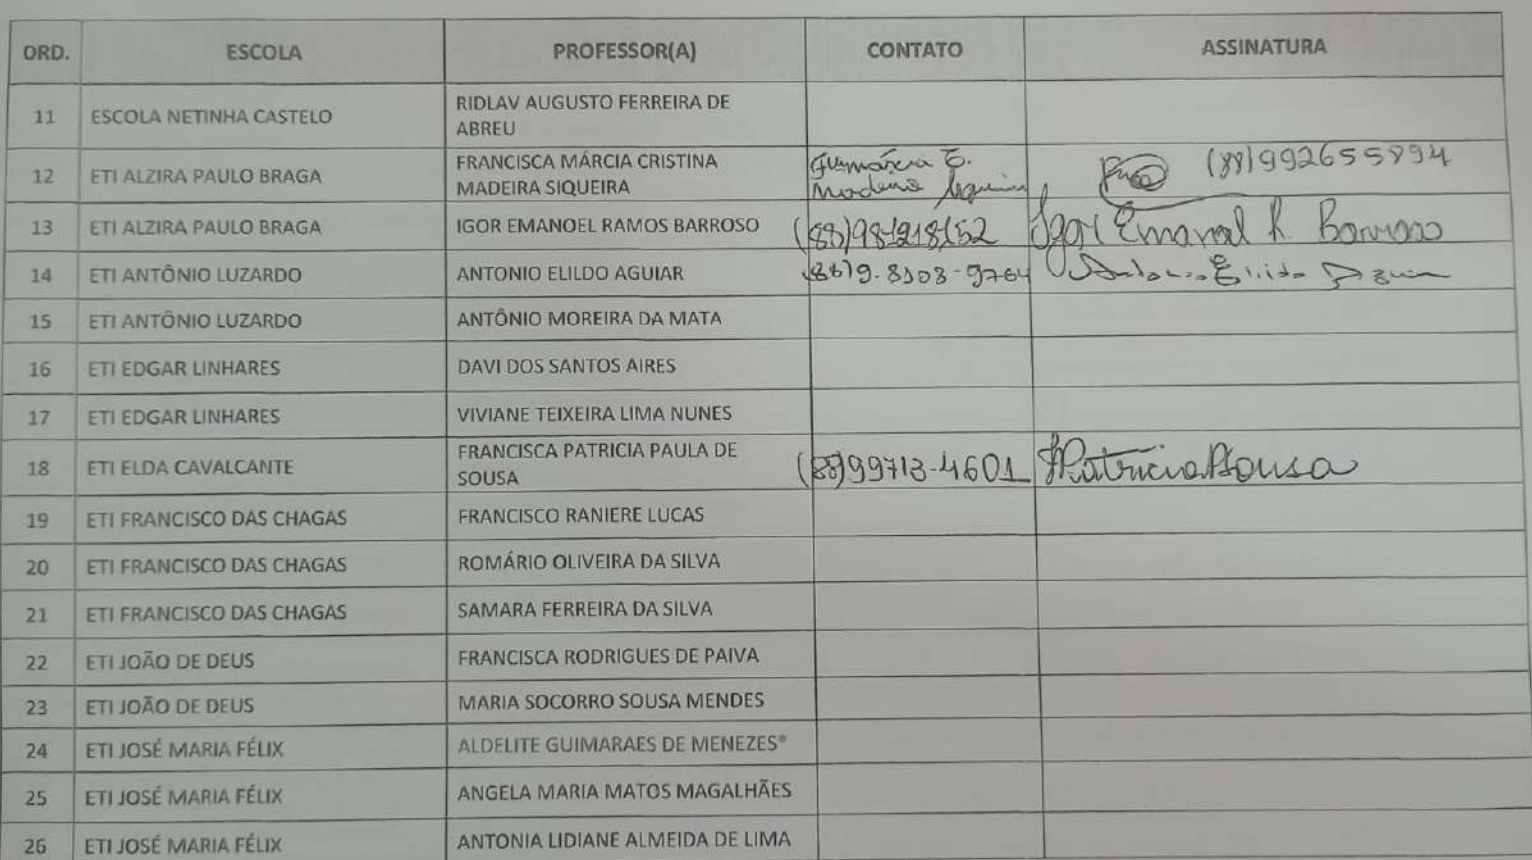 ORD. ESCOLA PROFESSOR(A) CONTATO ASSINATURA
11 ESCOLA NETINHA CASTELO RIDLAV AUGUSTO FERREIRA DE
ABREU
12 ETI ALZIRA PAULO BRAGA FRANCISCA MÁRCIA CRISTINA (88)992655894
MADEIRA SIQUEIRA Madeira Siqueira
13 ETI ALZIRA PAULO BRAGA IGOR EMANOEL RAMOS BARROSO Igor Emanoel R. Barroso
14 ETI ANTÔNIO LUZARDO ANTONIO ELILDO AGUIAR Antonio Elildo Aguiar
15 ETI ANTÔNIO LUZARDO ANTÔNIO MOREIRA DA MATA
16 ETI EDGAR LINHARES DAVI DOS SANTOS AIRES
17 ETI EDGAR LINHARES VIVIANE TEIXEIRA LIMA NUNES
18 ETI ELDA CAVALCANTE FRANCISCA PATRICIA PAULA DE (88)99713-4601
SOUSA
19 ETI FRANCISCO DAS CHAGAS FRANCISCO RANIERE LUCAS
20 ETI FRANCISCO DAS CHAGAS ROMÁRIO OLIVEIRA DA SILVA
21 ETI FRANCISCO DAS CHAGAS SAMARA FERREIRA DA SILVA
22 ETI JOÃO DE DEUS FRANCISCA RODRIGUES DE PAIVA
23 ETI JOÃO DE DEUS MARIA SOCORRO SOUSA MENDES
24 ETI JOSÉ MARIA FÉLIX ALDELITE GUIMARAES DE MENEZES*
25 ETI JOSÉ MARIA FÉLIX ANGELA MARIA MATOS MAGALHÃES
26 ETI JOSÉ MARIA FÉLIX ANTONIA LIDIANE ALMEIDA DE LIMA